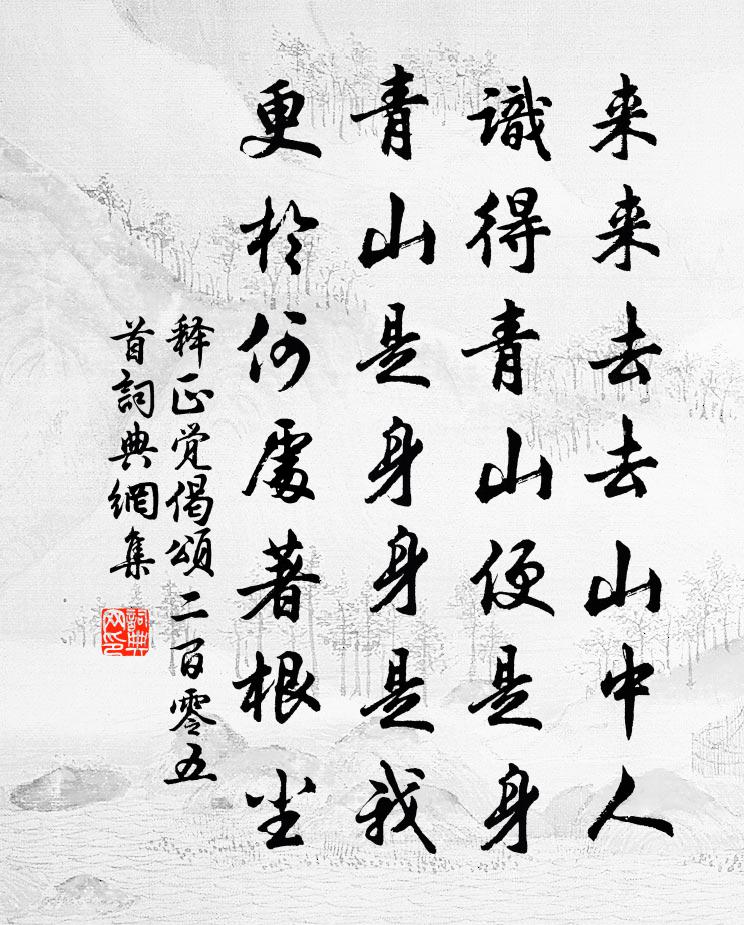 来来去去山中人
識得青山便是身
青山是身身是我
更於何處著根尘
释正觉偈頌二百零五
首詞典網集
詞典
网印